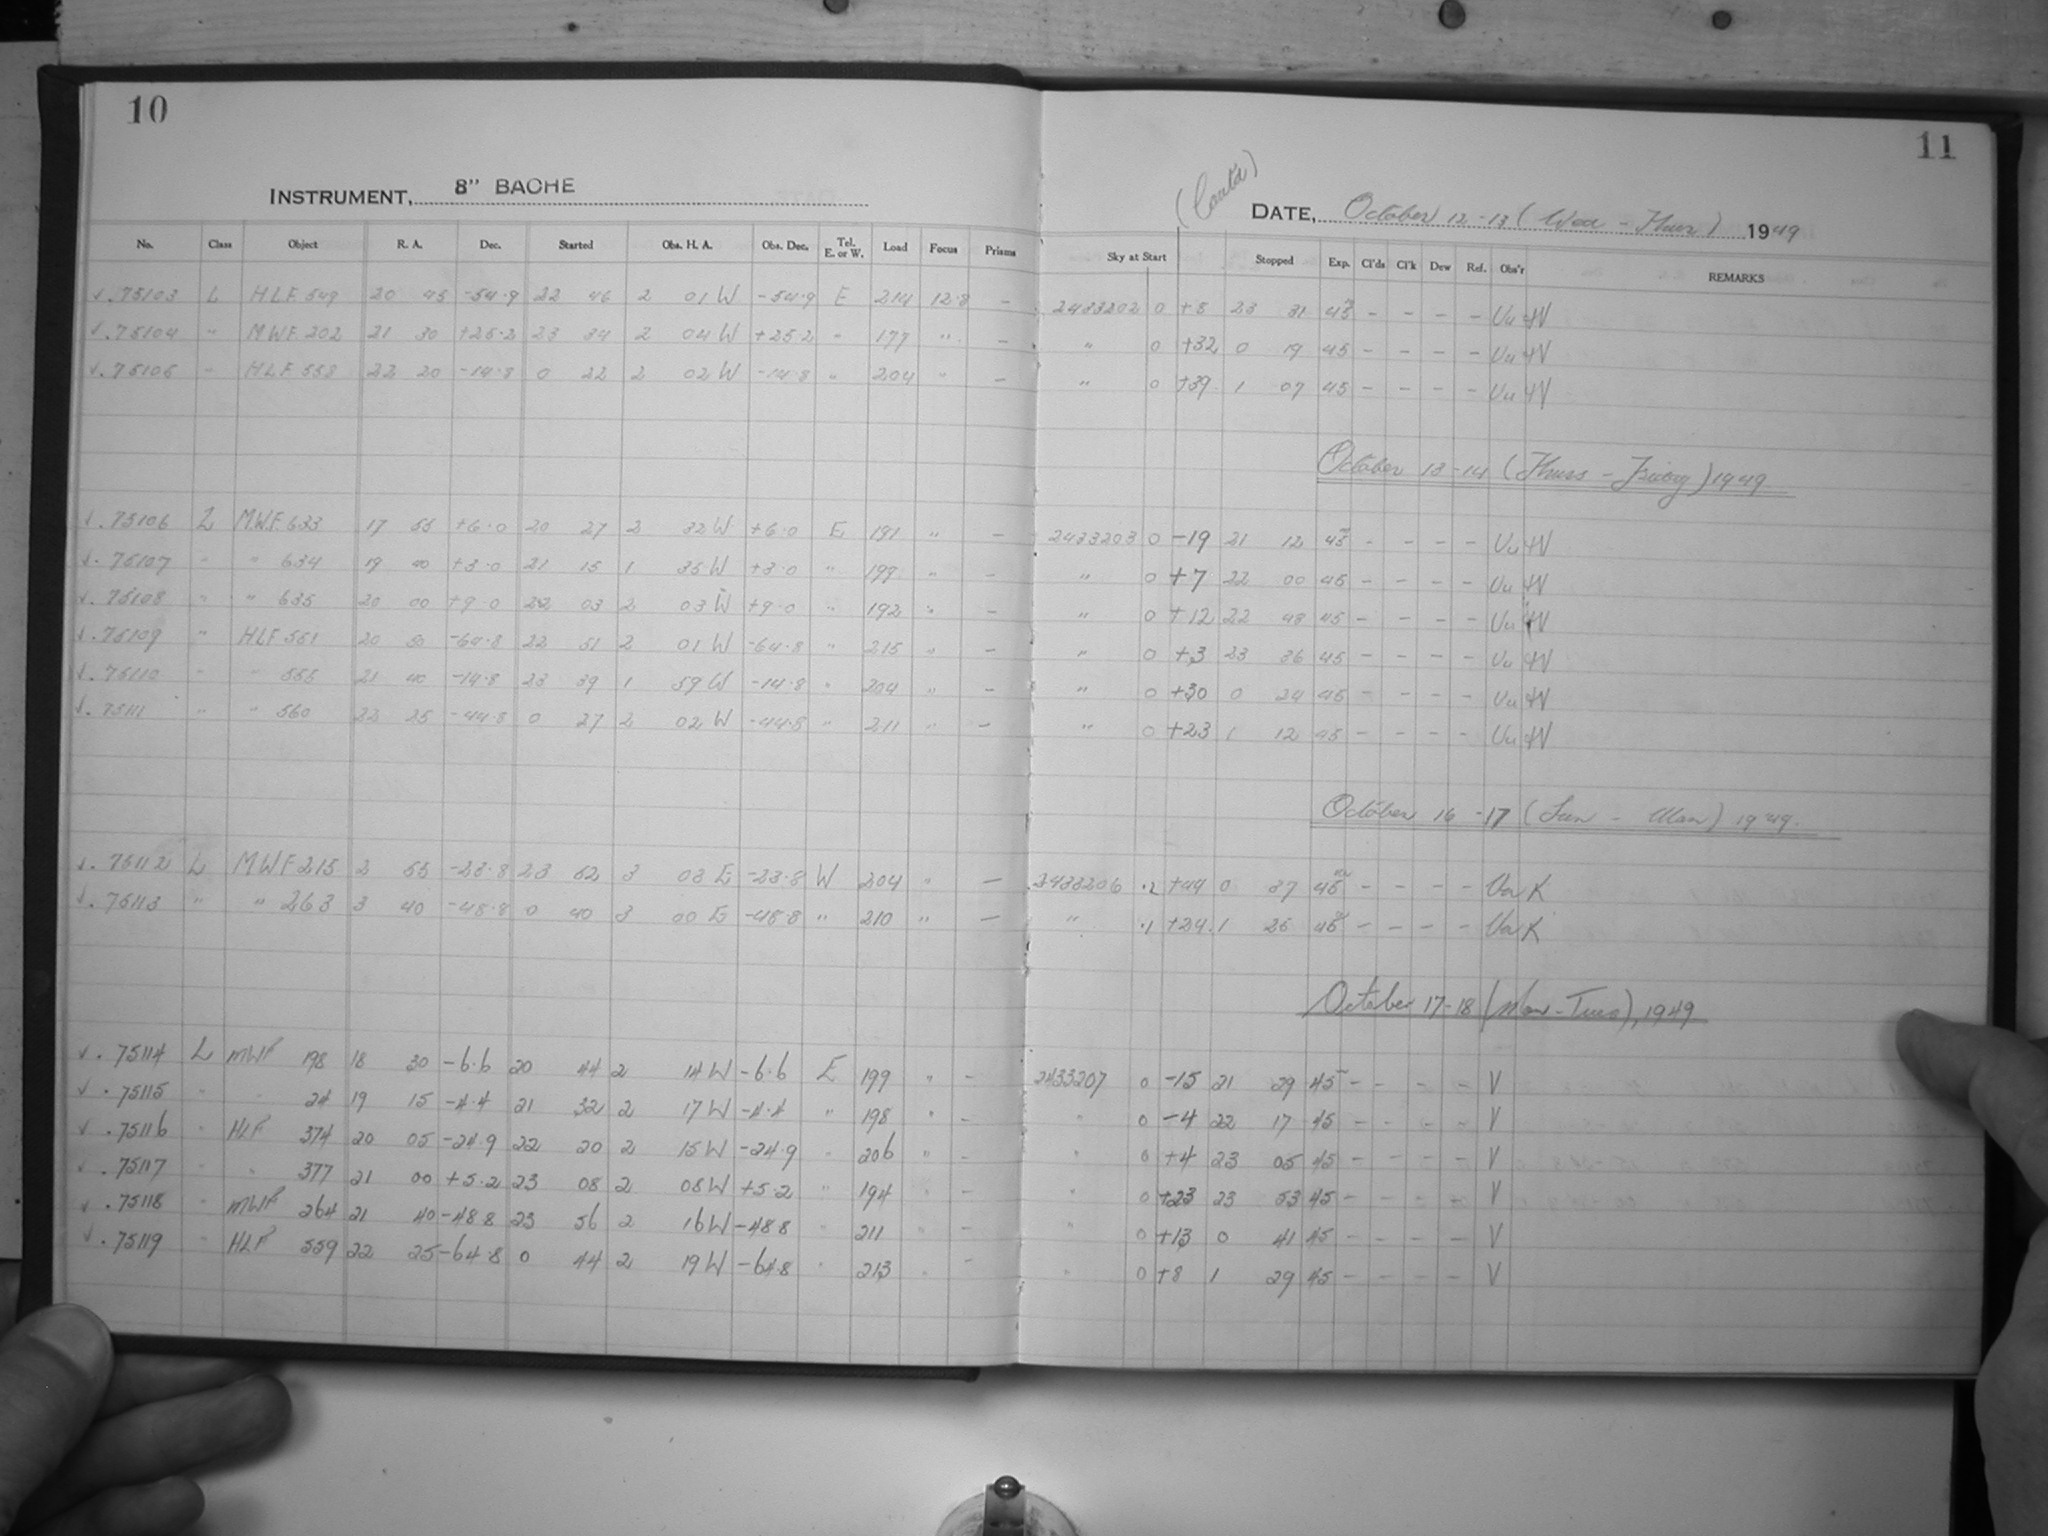 10
INSTRUMENT, 8" BACHE
No. Class Object R. A. Dec. Started Obs. H. A. Obs. Dec. Tel. E. or W. Load Focus Prisms
√ . 75103 L HLF 549 20 45 -54.9 22 46 2 01 W -54.9 E 214 12.8 -
√ . 75104 " MWF 202 21 30 +25.2 23 34 2 04 W +25.2 " 177 " -
√ . 75105 " HLF 558 22 20 -14.8 0 22 2 02 W -14.8 " 204 " -
√ . 75106 L MWF 633 17 55 +6.0 20 27 2 32 W +6.0 E 191 " -
√ . 75107 " " 634 19 40 +3.0 21 15 1 35 W +3.0 " 199 " -
√ . 75108 " " 635 20 00 +9.0 22 03 2 03 W +9.0 " 192 " -
√ . 75109 " HLF 551 20 50 -64.8 22 51 2 01 W -64.8 " 215 " -
√ . 75110 " " 555 21 40 -14.8 23 39 1 59 W -14.8 " 204 " -
√ . 75111 " " 560 22 25 -44.8 0 27 2 02 W -44.8 " 211 " -
√ . 75112 L MWF 215 2 55 -23.8 23 52 3 03 E -23.8 W 204 " -
√ . 75113 " " 263 3 40 -48.8 0 40 3 00 E -48.8 " 210 " -
√ . 75114 L MWF 198 18 30 -6.6 20 44 2 14 W -6.6 E 199 " -
√ . 75115 " " 24 19 15 -4.4 21 32 2 17 W -4.4 " 198 " -
√ . 75116 " HLF 374 20 05 -24.9 22 20 2 15 W -24.9 " 206 " -
√ . 75117 " " 377 21 00 +5.2 23 08 2 08 W +5.2 " 194 " -
√ . 75118 " MWF 264 21 40 -48.8 23 56 2 16 W -48.8 " 211 " -
√ . 75119 " HLF 559 22 25 -64.8 0 44 2 19 W -64.8 " 213 " -
11
(Contd) DATE, October 12-13 (Wed - Thurs) 1949
Sky at Start Stopped Exp. Cl'ds Cl'k Dew Ref. Obs'r REMARKS
2433202 0 +8 23 31 45 - - - - Vu W
" 0 +32 0 19 45 - - - - Vu W
" 0 +39 1 07 45 - - - - Vu W
October 13-14 (Thurs - Friday) 1949
2433203 0 -19 21 12 45 - - - - Vu W
" 0 +7 22 00 45 - - - - Vu W
" 0 +12 22 48 45 - - - - Vu W
" 0 +3 23 36 45 - - - - Vu W
" 0 +30 0 24 45 - - - - Vu W
" 0 +23 1 12 45 - - - - Vu W
October 16-17 (Sun - Mon) 1949.
2433206 .2 +44 0 37 45 - - - - K
" .1 +24 1 25 45 - - - - K
October 17-18 (Mon - Tues), 1949
2433207 0 -15 21 29 45 - - - - V
" 0 -4 22 17 45 - - - - V
" 0 +4 23 05 45 - - - - V
" 0 +23 23 53 45 - - - - V
" 0 +13 0 41 45 - - - - V
" 0 +8 1 29 45 - - - - V